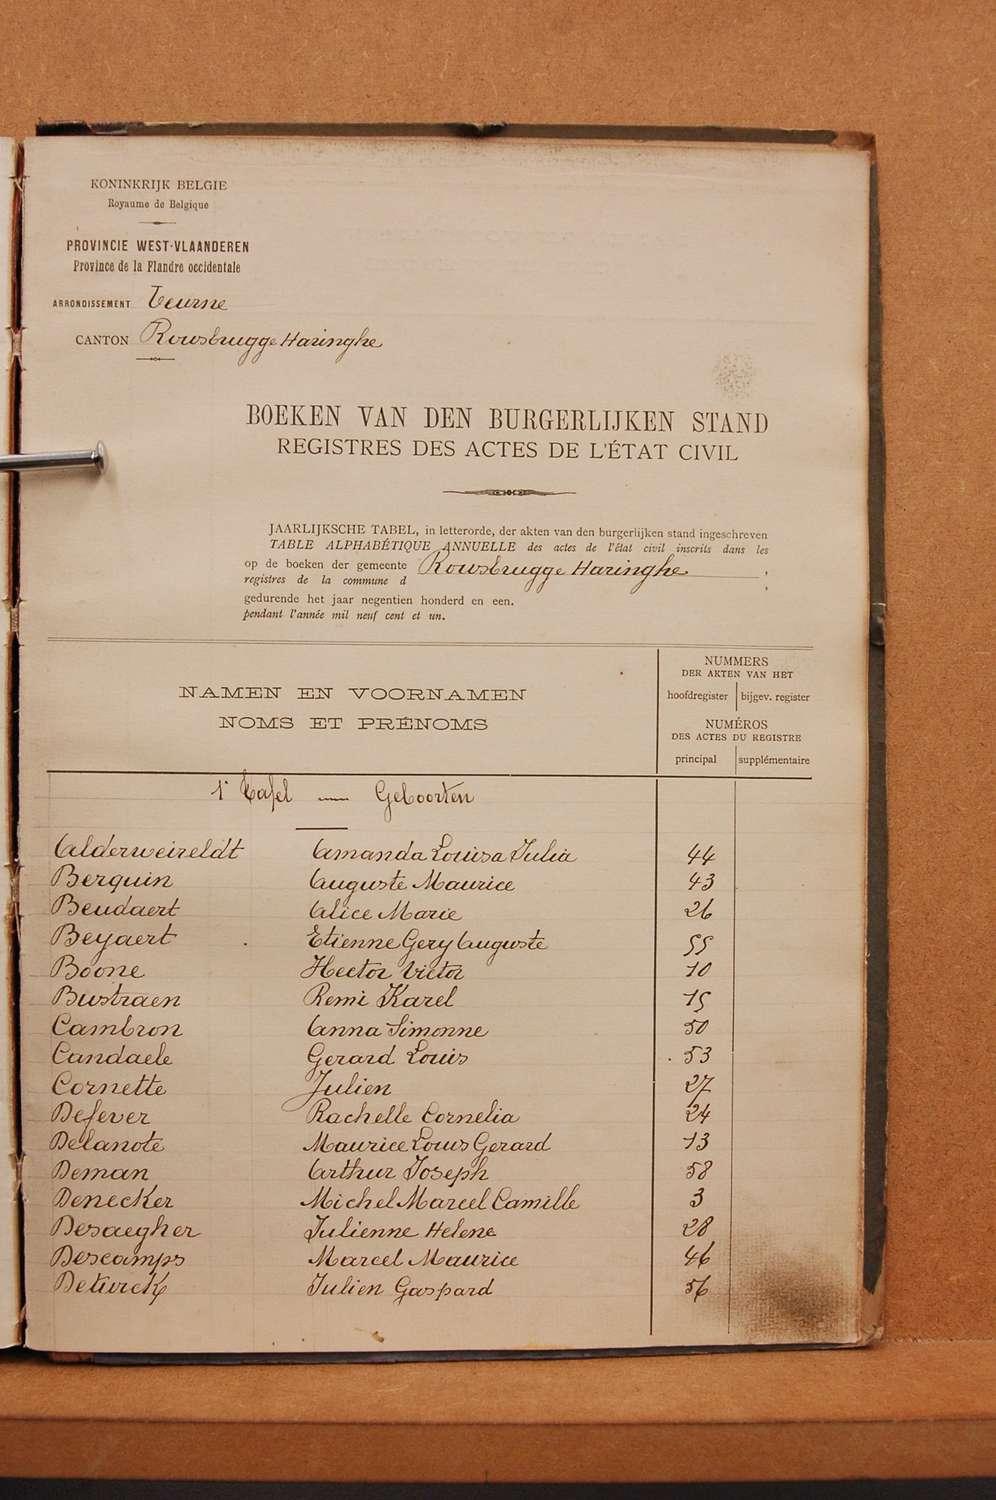 KONINKRIJK BELGIE
Royaume de Belgique
PROVINCIE WEST-VLAANDEREN
Province de la Flandre occidentale
ARRONDISSEMENT Veurne
CANTON Rousbrugge Haringhe
BOEKEN VAN DEN BURGERLIJKEN STAND
REGISTRES DES ACTES DE L'ÉTAT CIVIL
JAARLIJKSCHE TABEL, in letterorde, der akten van den burgerlijken stand ingeschreven
TABLE ALPHABÉTIQUE ANNUELLE des actes de l'état civil inscrits dans les
op de boeken der gemeente Rousbrugge Haringhe
registres de la commune d
gedurende het jaar negentien honderd en een.
pendant l'année mil neuf cent et un.
NAMEN EN VOORNAMEN
NOMS ET PRÉNOMS
NUMMERS
DER AKTEN VAN HET
hoofdregister bijgev. register
NUMÉROS
DES ACTES DU REGISTRE
principal supplémentaire
1e Tafel — Geboorten
Alderweireldt Amanda Louisa Julia 44
Berquin Auguste Maurice 43
Beudaert Alice Marie 26
Beyaert Etienne Gery Auguste 55
Boone Hector Victor 10
Bustraen Remi Karel 15
Cambron Anna Simonne 50
Candaele Gerard Louis 53
Cornette Julien 27
Defever Rachelle Cornelia 24
Delanote Maurice Louis Gerard 13
Deman Arthur Joseph 58
Denecker Michel Marcel Camille 3
Desaegher Julienne Helene 28
Descamps Marcel Maurice 46
Deturck Julien Gaspard 56